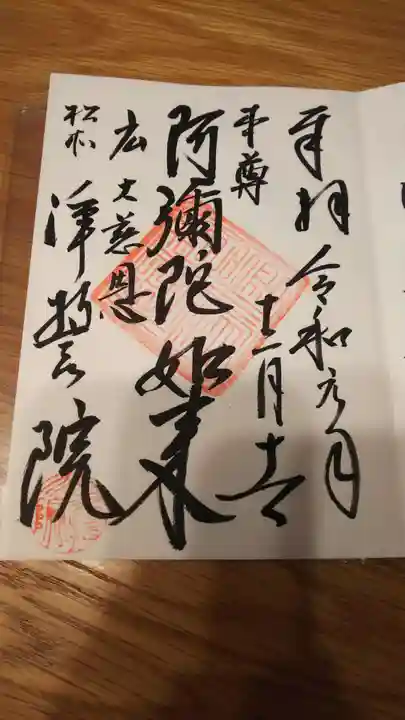 奉拝 令和元年
十一月十六
本尊
阿彌陀如来
広大慈恩
松本 浄誓院